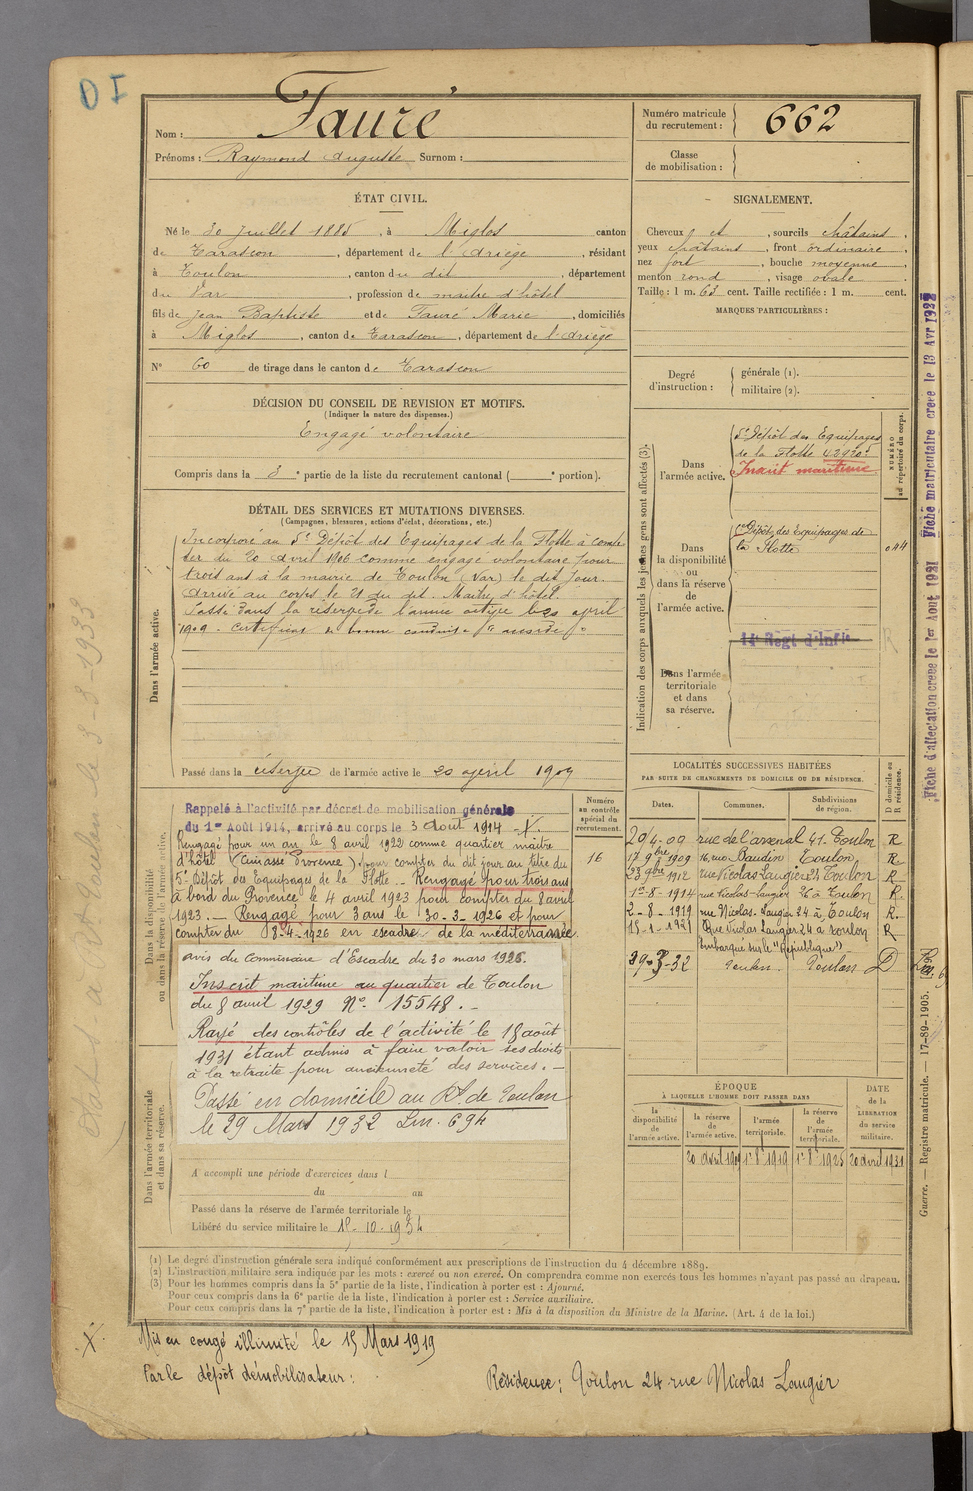 D I
Nom : Fauré
Prénoms : Raymond Auguste Surnom :
Numéro matricule du recrutement : 662
Classe de mobilisation :
ÉTAT CIVIL.
Né le 30 Juillet 1885, à Miglos canton
de Tarascon, département de l'Ariège, résidant
à Toulon, canton du dit, département
du Var, profession de maître d'hôtel
fils de Jean Baptiste et de Fauré Marie, domiciliés
à Miglos, canton de Tarascon, département de l'Ariège
N° 60 de tirage dans le canton de Tarascon
SIGNALEMENT.
Cheveux et, sourcils châtains,
yeux châtains, front ordinaire,
nez fort, bouche moyenne,
menton rond, visage ovale
Taille : 1 m. 63 cent. Taille rectifiée : 1 m. cent.
MARQUES PARTICULIÈRES :
Degré d'instruction : générale (1).
militaire (2).
DÉCISION DU CONSEIL DE REVISION ET MOTIFS.
(Indiquer la nature des dispenses.)
Engagé volontaire
Compris dans la 3e partie de la liste du recrutement cantonal ( e portion).
DÉTAIL DES SERVICES ET MUTATIONS DIVERSES.
(Campagnes, blessures, actions d'éclat, décorations, etc.)
Dans l'armée active.
Incorporé au 5e Dépôt des Equipages de la Flotte à comp-
ter du 20 avril 1906 comme engagé volontaire pour
trois ans à la mairie de Toulon (Var) le dit jour.
Arrivé au corps le 21 du dit. Maître d'hôtel.
Passé dans la réserve de l'armée active le 20 avril
1909. Certificat de bonne conduite "accordé"
Passé dans la réserve de l'armée active le 20 avril 1909
Indication des corps auxquels les jeunes gens sont affectés (3).
Dans l'armée active.
5e Dépôt des Equipages
de la Flotte 42920
Inscrit maritime
NUMÉRO au répertoire du corps.
Dans la disponibilité ou dans la réserve de l'armée active.
Dépôt des Equipages de
la Flotte
Dans l'armée territoriale et dans sa réserve.
14e Regt d'Infie
LOCALITÉS SUCCESSIVES HABITÉES
PAR SUITE DE CHANGEMENTS DE DOMICILE OU DE RÉSIDENCE.
D domicile ou R résidence.
Dates. Communes. Subdivisions de région.
20-4-09 rue de l'arsenal 41. Toulon R
17 9bre 1909 16, rue Baudin Toulon R.
23 9bre 1912 rue Nicolas Laugier 24 Toulon R
1er-8-1914 rue Nicolas-Laugier 26 à Toulon R.
2-8-1919 rue Nicolas Laugier 24 à Toulon R.
15-1-1921 Rue Nicolas Laugier 24 à Toulon R
Embarqué sur le "République"
29-3-32 Toulon. Toulon D
Dans la disponibilité ou dans la réserve de l'armée active.
Numéro au contrôle spécial du recrutement.
16
Rappelé à l'activité par décret de mobilisation générale
du 1er Août 1914, arrivé au corps le 3 Août 1914
Rengagé pour un an le 8 avril 1922 comme quartier maître
d'hôtel (Cuirassé Provence) pour compter du dit jour au titre du
5e Dépôt des Equipages de la Flotte. Rengagé pour trois ans
à bord du Provence le 4 avril 1923 pour compter du 8 avril
1923. — Rengagé pour 3 ans le 30-3-1926 et pour
compter du 8-4-1926 en escadre de la méditerranée
avis du Commissaire d'Escadre du 30 mars 1926.
Inscrit maritime au quartier de Toulon
du 8 avril 1929 N° 15548. —
Rayé des contrôles de l'activité le 18 août
1931 étant admis à faire valoir ses droits
à la retraite pour ancienneté des services. —
Passé en domicile au Rt de Toulon
le 29 Mars 1932 Lm. 694
Dans l'armée territoriale et dans sa réserve.
A accompli une période d'exercices dans l
du au
Passé dans la réserve de l'armée territoriale le
Libéré du service militaire le 15-10-1934
ÉPOQUE
À LAQUELLE L'HOMME DOIT PASSER DANS
la disponibilité de l'armée active.
la réserve de l'armée active.
l'armée territoriale.
la réserve de l'armée territoriale.
DATE de la LIBÉRATION du service militaire.
20 avril 1909 1er 8bre 1919 1er 8bre 1925 20 avril 1931
(1) Le degré d'instruction générale sera indiqué conformément aux prescriptions de l'instruction du 4 décembre 1889.
(2) L'instruction militaire sera indiquée par les mots : exercé ou non exercé. On comprendra comme non exercés tous les hommes n'ayant pas passé au drapeau.
(3) Pour les hommes compris dans la 5e partie de la liste, l'indication à porter est : Ajourné.
Pour ceux compris dans la 6e partie de la liste, l'indication à porter est : Service auxiliaire.
Pour ceux compris dans la 7e partie de la liste, l'indication à porter est : Mis à la disposition du Ministre de la Marine. (Art. 4 de la loi.)
Mis en congé illimité le 15 Mars 1919
Par le dépôt démobilisateur :
Résidence : Toulon 24 rue Nicolas Laugier
Fiche d'affectation créée le 1er Août 1921 Fiche matriculaire créée le 13 Avr 1922
Guerre. — Registre matricule. — 17-89-1905.